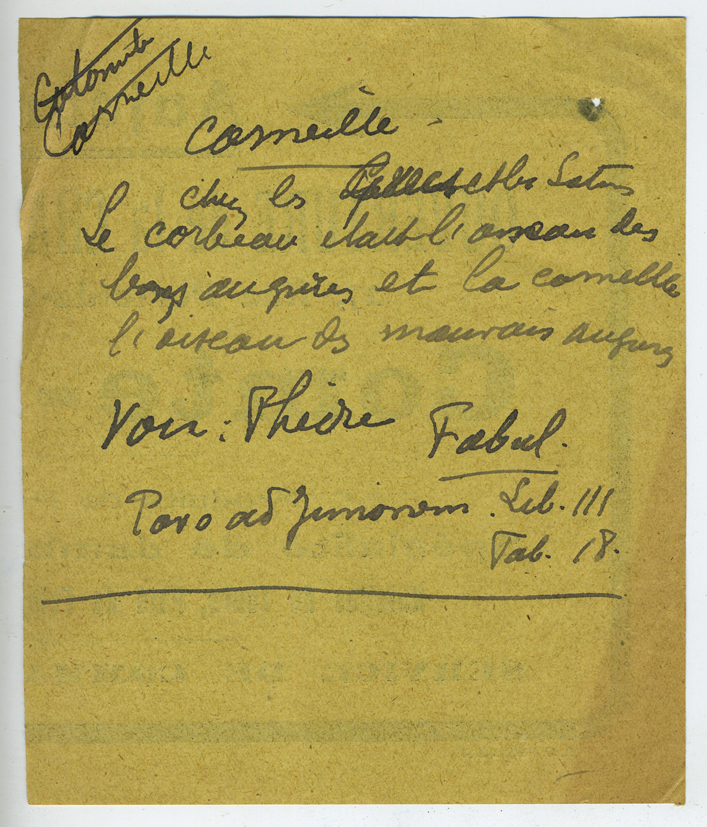 Corneille
Corneille.
chez les et les Latins
Le corbeau était l'oiseau des
bons augures et la corneille
l'oiseau des mauvais augures
Voir : Phèdre Fabul.
Pavo ad Junonem. Lib. III
Fab. 18.